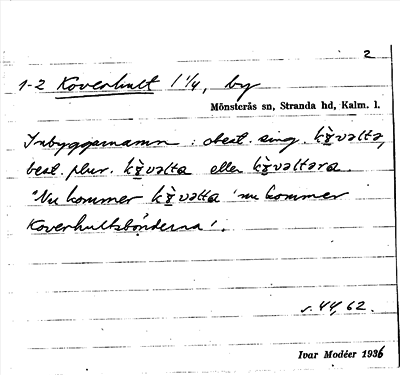 2
1-2 Koverhult 1 1/4, by
Mönsterås sn, Stranda hd, Kalm. l.
Inbyggarnamn: obest. sing. kɤ̀vəlta,
best. plur. kɤ̀vəlta eller kɤ̀vəltəra.
"Nu kommer kɤ̀vəlta 'nu kommer
Koverhultsbönderna'.
s. 44, 62.
Ivar Modéer 1936